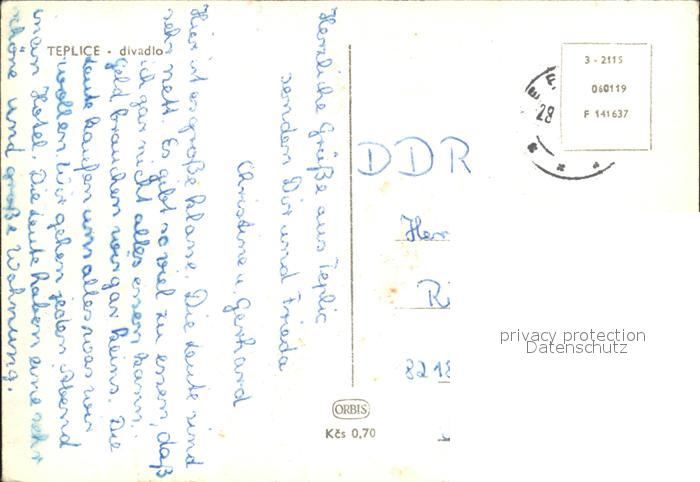 TEPLICE - divadlo
Herzliche Grüße aus Teplic
senden Dir und Frieda
Christine u. Gerhard
Hier ist es große Klasse. Die Leute sind
sehr nett. Es gibt so viel zu essen, daß
ich gar nicht alles essen kann.
Geld brauchen wir gar keins. Die
Leute kaufen uns alles was wir
wollen. Wir gehen jeden Abend
in ein Hotel. Die Leute haben eine sehr
schöne und große Wohnung.
3 - 2115
060119
F 141637
28
DDR
Her
R
821
ORBIS
Kčs 0,70
privacy protection
Datenschutz